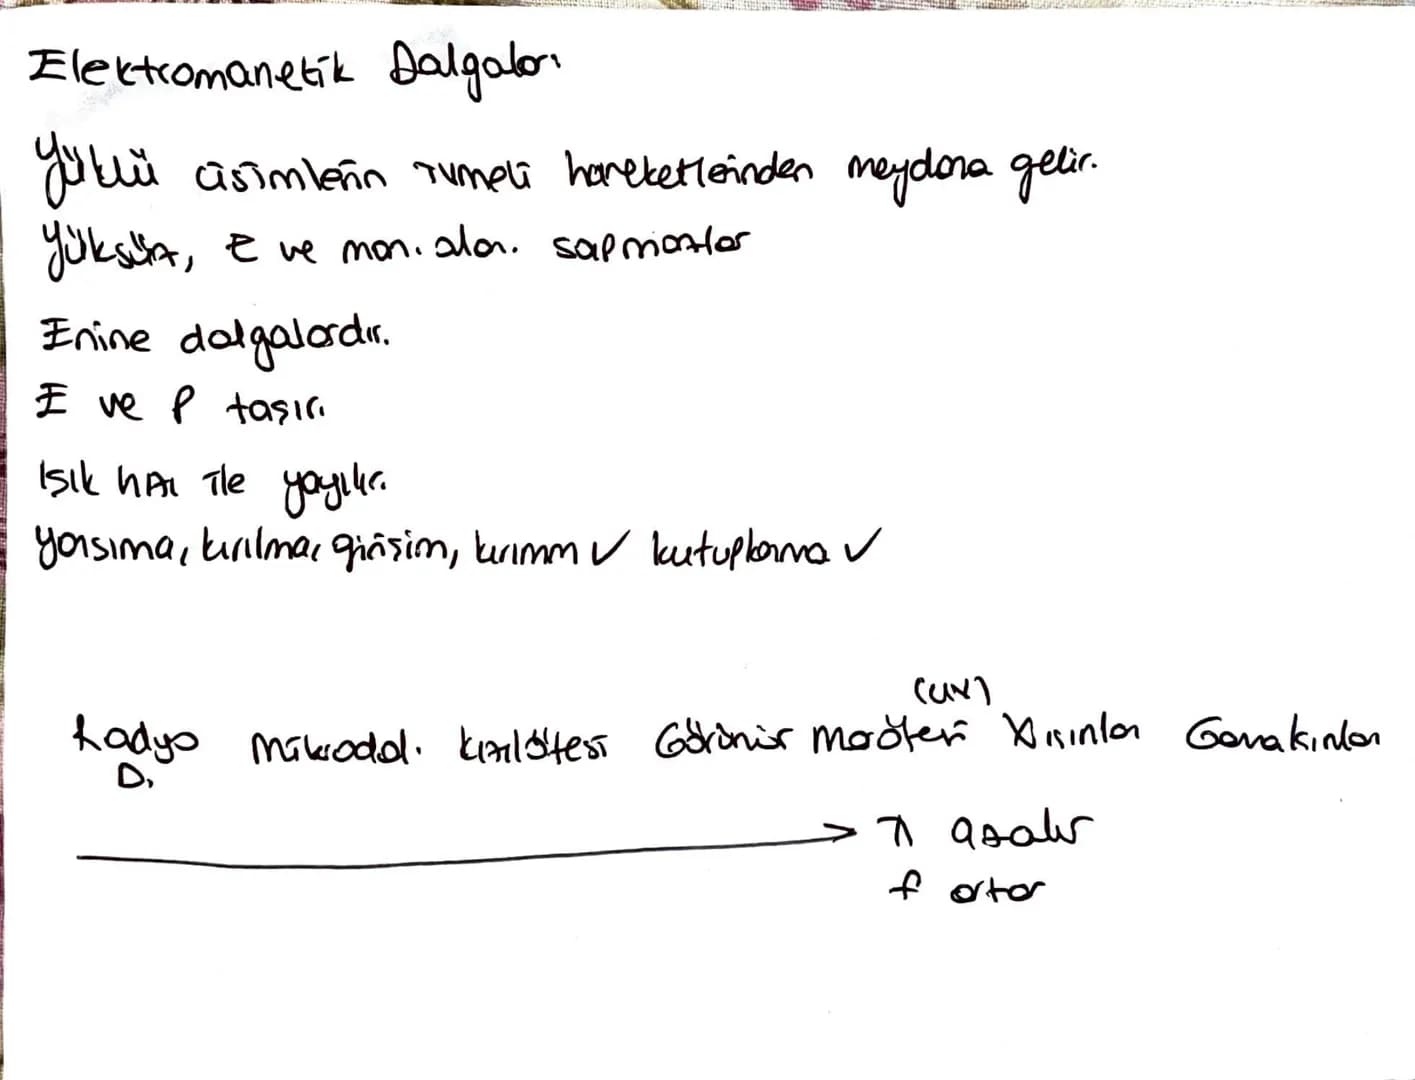 Elektromanetik Dalgalar
Yüklü cisimlerin ivmeli hareketlerinden meydana gelir.
Yüksüz, E ve man. alan. sapmazlar
Enine dalgalardır.
E ve P taşır.
Işık hızı ile yayılır.
yansıma, kırılma, girişim, kırınım ✓ kutuplanma ✓
(UV)
Radyo D. Mikrodal. kızılötesi Görünür morötesi X ışınları Gama ışınları
→ λ azalır
f artar